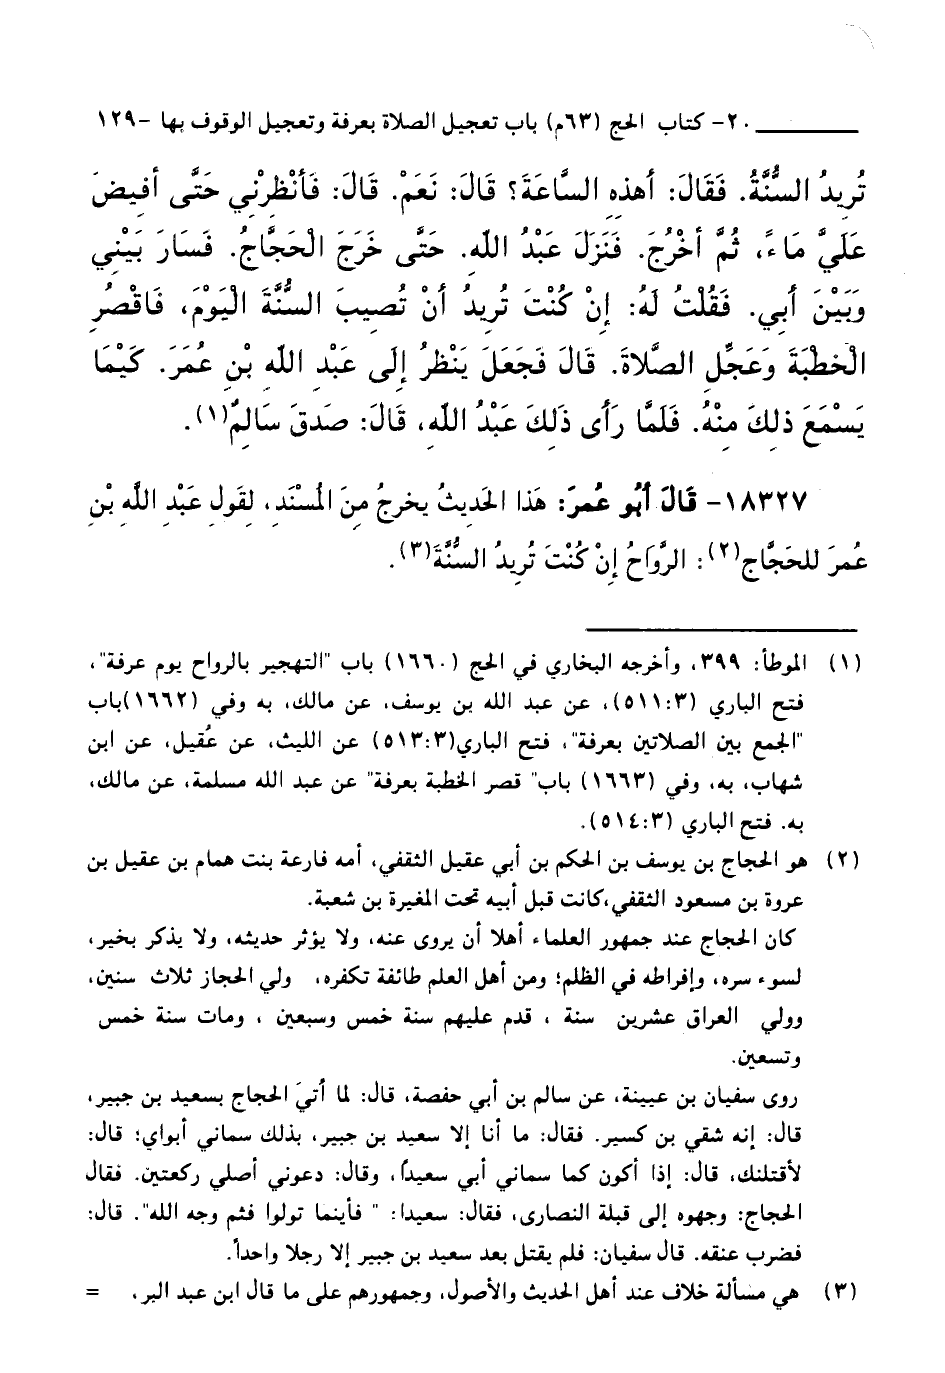 ٢٠- كتاب الحج (٦٣م) باب تعجيل الصلاة بعرفة وتعجيل الوقوف بها -١٢٩
تُرِيدُ السُّنَّةُ. فَقَالَ: أهذه السَّاعَةَ؟ قَالَ: نَعَمْ. قَالَ: فَأَنْظِرْنِي حَتَّى أفيضَ
عَلَيَّ مَاءً، ثُمَّ أخْرُجَ. فَنَزَلَ عَبْدُ اللّه. حَتَّى خَرَجَ الْحَجَّاجُ. فَسَارَ بَيْنِي
وَبَيْنَ أبي. فَقُلْتُ لَهُ: إنْ كُنْتَ تُرِيدُ أنْ تُصِيبَ السُّنَّةَ الْيَوْمَ، فَاقْصُرِ
الْخطبَةَ وَعَجِّلِ الصَّلاةَ. قَالَ فَجَعَلَ يَنْظُرُ إلَى عَبْدِ اللّهِ بْنِ عُمَرَ. كَيْمَا
يَسْمَعَ ذلِكَ مِنْهُ. فَلَمَّا رَأى ذلِكَ عَبْدُ اللّه، قَالَ: صَدَقَ سَالِمٌ(١).
١٨٣٢٧- قَالَ أبُو عُمرَ: هَذا الحَديثُ يخرجُ مِنَ المُسْنَدِ، لقَولِ عَبْدِ اللَّه بْنِ
عُمرَ للحَجَّاجِ(٢): الرَّوَاحُ إنْ كُنْتَ تُرِيدُ السُّنَّةَ(٣).
(١) الموطأ: ٣٩٩، وأخرجه البخاري في الحج (١٦٦٠) باب "التهجير بالرواح يوم عرفة"،
فتح الباري (٥١١:٣)، عن عبد الله بن يوسف، عن مالك، به وفي (١٦٦٢)باب
"الجمع بين الصلاتين بعرفة"، فتح الباري(٥١٣:٣) عن الليث، عن عُقيل، عن ابن
شهاب، به، وفي (١٦٦٣) باب" قصر الخطبة بعرفة" عن عبد الله مسلمة، عن مالك،
به. فتح الباري (٥١٤:٣).
(٢) هو الحجاج بن يوسف بن الحكم بن أبي عقيل الثقفي، أمه فارعة بنت همام بن عقيل بن
عروة بن مسعود الثقفي،كانت قبل أبيه تحت المغيرة بن شعبة.
كان الحجاج عند جمهور العلماء أهلا أن يروى عنه، ولا يؤثر حديثه، ولا يذكر بخير،
لسوء سره، وإفراطه في الظلم؛ ومن أهل العلم طائفة تكفره، ولي الحجاز ثلاث سنين،
وولي العراق عشرين سنة ، قدم عليهم سنة خمس وسبعين ، ومات سنة خمس
وتسعين.
روى سفيان بن عيينة، عن سالم بن أبي حفصة، قال: لما أُتيَ الحجاج بسعيد بن جبير،
قال: إنه شقي بن كسير. فقال: ما أنا إلا سعيد بن جبير، بذلك سماني أبواي؛ قال:
لأقتلنك، قال: إذا أكون كما سماني أبي سعيداً، وقال: دعوني أصلي ركعتين. فقال
الحجاج: وجهوه إلى قبلة النصارى، فقال: سعيدا: " فأينما تولوا فثم وجه الله". قال:
فضرب عنقه. قال سفيان: فلم يقتل بعد سعيد بن جبير إلا رجلا واحداً.
(٣) هي مسألة خلاف عند أهل الحديث والأصول، وجمهورهم على ما قال ابن عبد البر، =